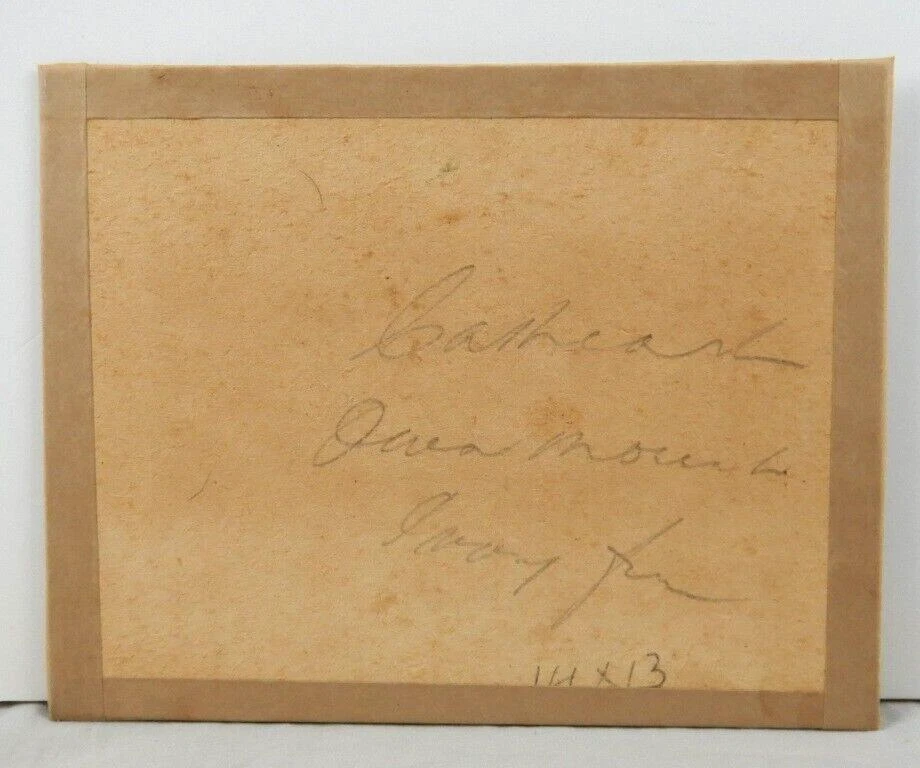 Cathcart
Own Mount
Ivory fr
14 x 13